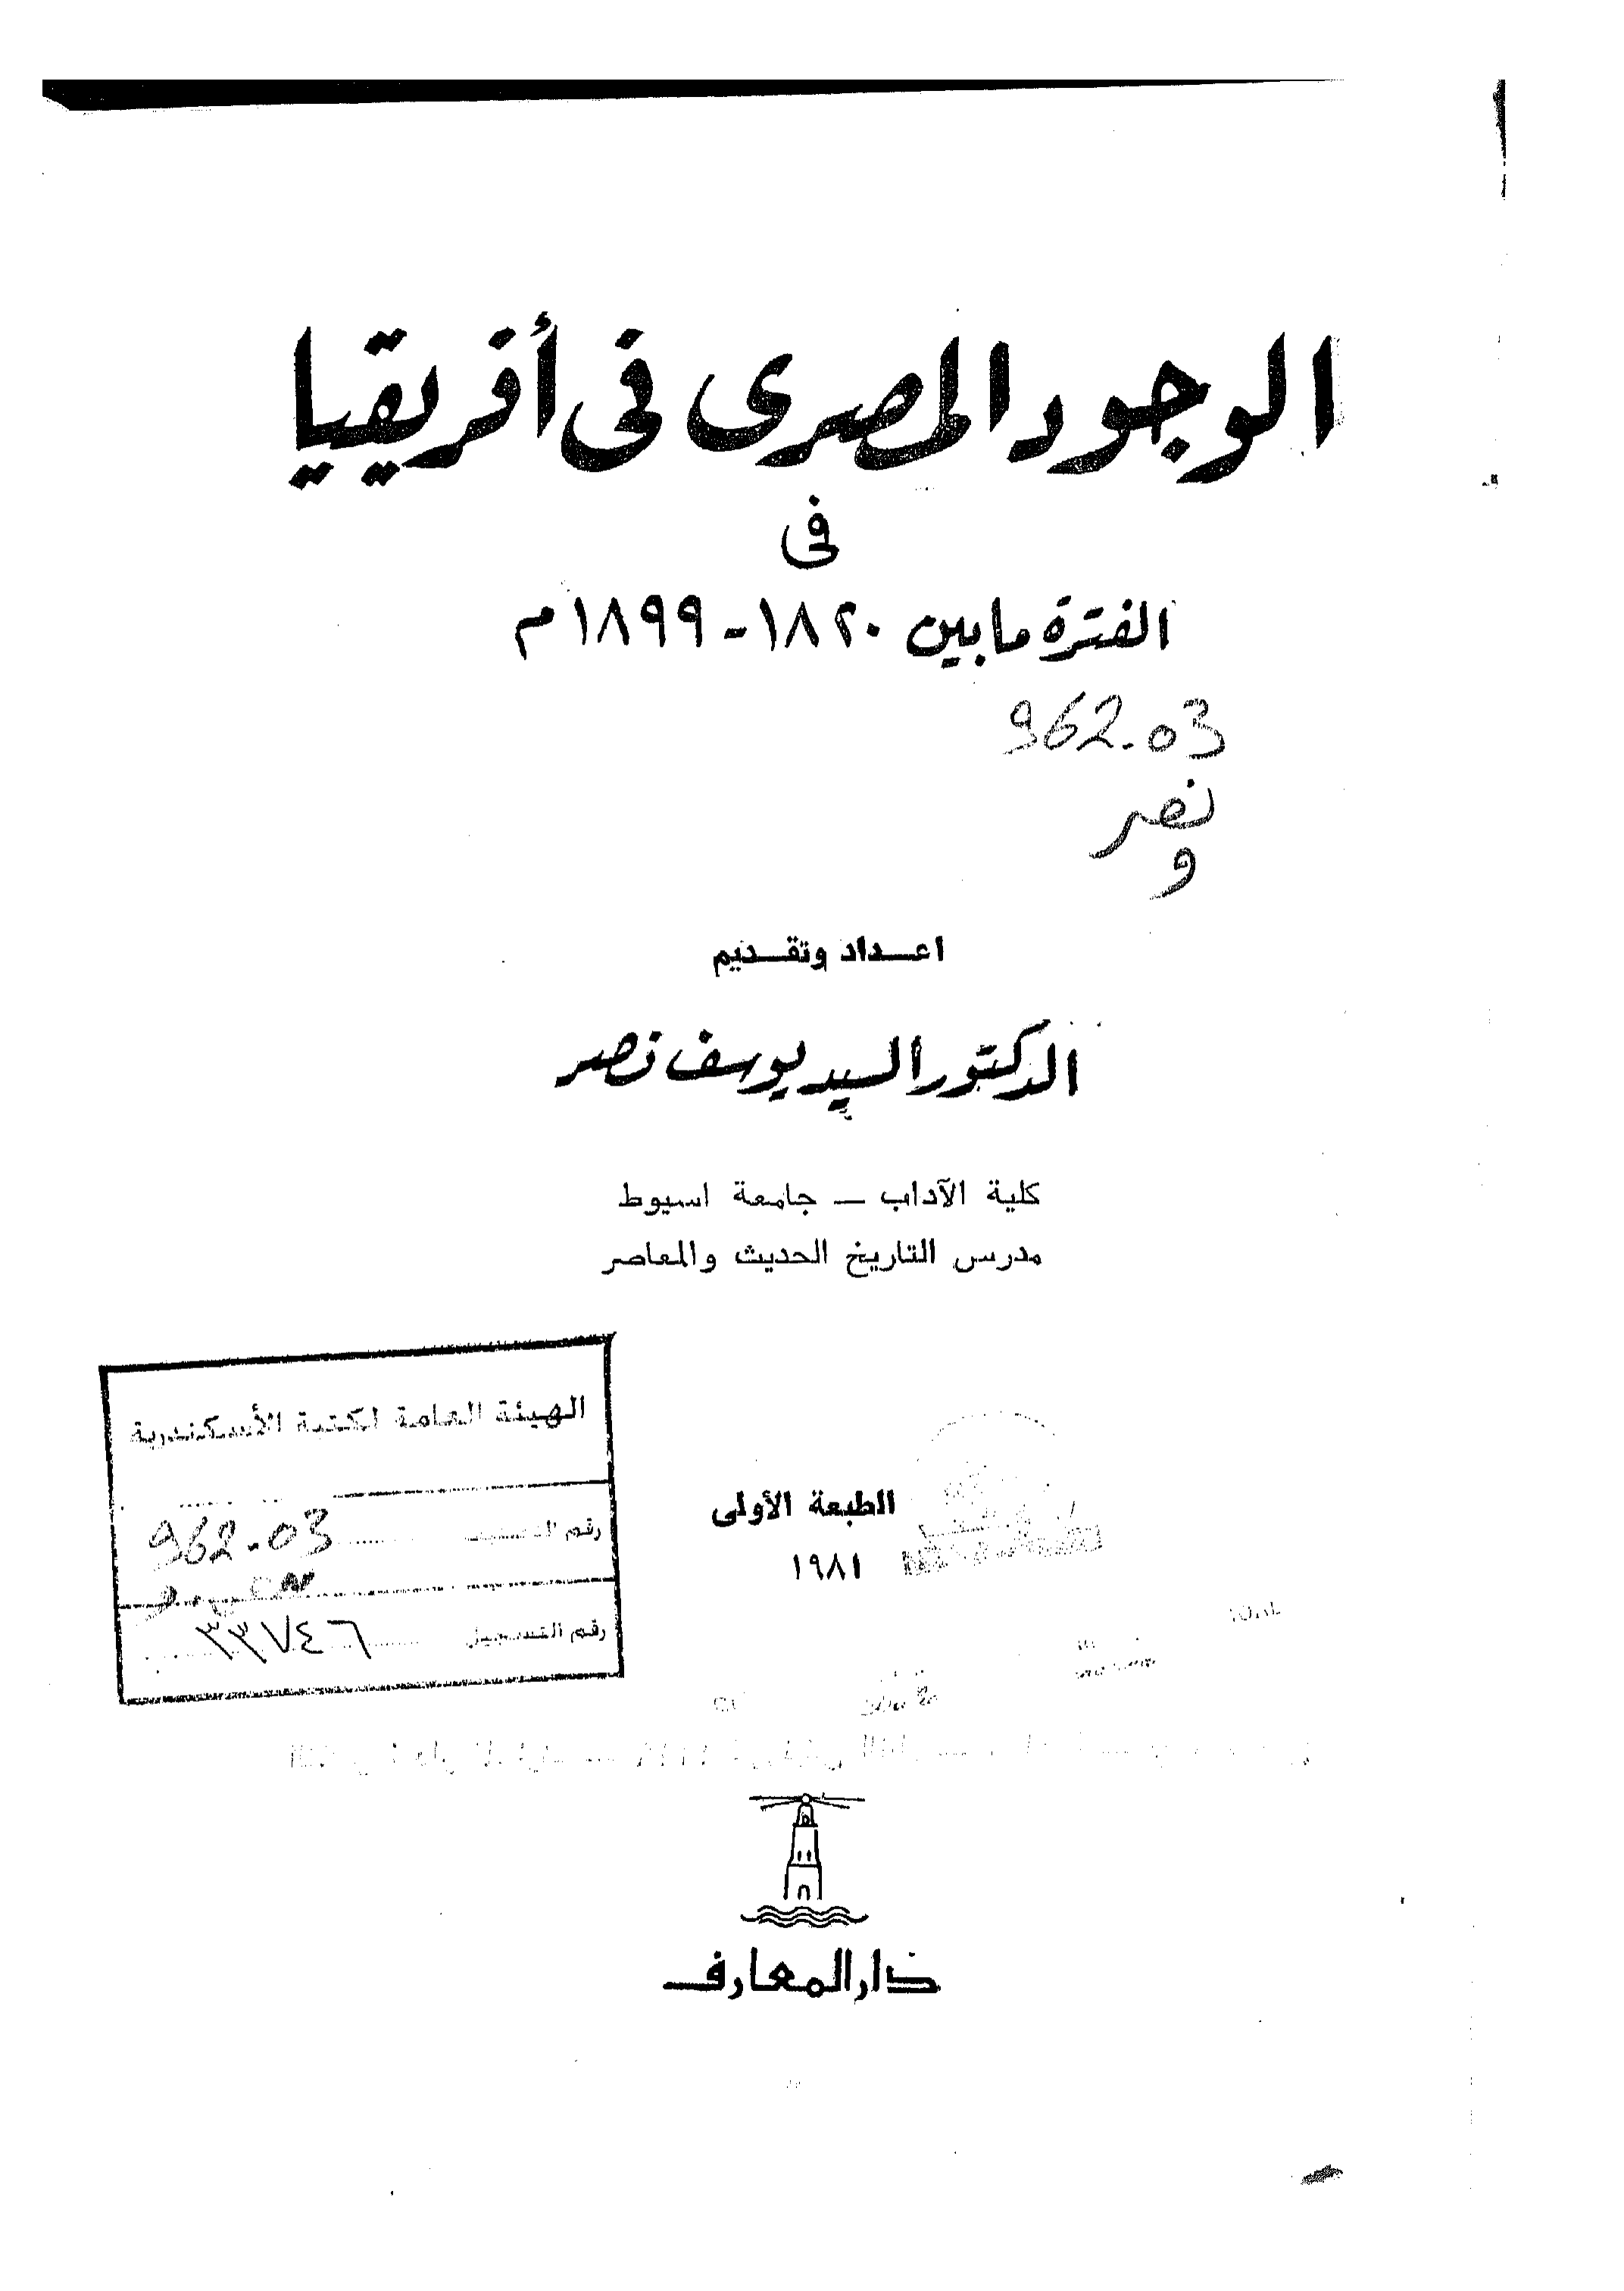 الوجود المصرى فى أفريقيا
فى
الفترة مابين ١٨٢٠-١٨٩٩م
962.03
نصر
و
اعداد وتقديم
الدكتور السيد يوسف نصر
كلية الآداب — جامعة اسيوط
مدرس التاريخ الحديث والمعاصر
الهيئة العامة لكتبة الأسكندرية
رقم التصنيف 962.03
رقم التسجيل ٣٣٧٤٦
الطبعة الأولى
١٩٨١
دار المعارف